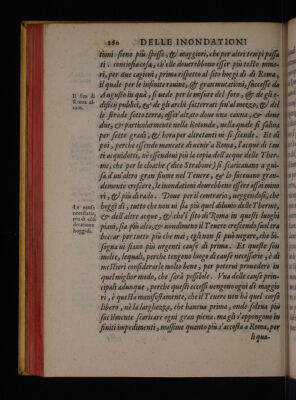 260 DELLE INONDATIONI
tioni sieno più spesse, & maggiori, che per altri tempi passa
ti. conciosia cosa, ch'elle dourebbono esser più tosto mino-
ri, per due cagioni; prima rispetto al sito hoggi dì di Roma,
il quale per le infinite ruine, & gran mutationi, successe da
Augusto in quà, si uede per misure del foro, & de gli e-
dificij publici, & de gli archi sotterrati fin'al mezzo, & del
le strade sotto terra, esser'alzato doue una canna, & doue
due, & particolarmente nella Rotonda, nella quale si saliua
per sette gradi, & hora per altretanti ui si scende. Et di
poi, perche essendo mancate di uenir'a Roma, l'acque di tan
ti acquidotti, nè essendoui più la copia dell'acque delle Ther-
me, che per le cloache (dice Strabone) si scaricauano a gui-
sa d'un'altro gran fiume nel Teuere, & lo faceuano gran-
demente crescere, le inondationi dourebbono essere assai mino
ri, & più di rado. Doue per il contrario, ueggendosi, che
hoggi dì, tutto che non ui sia più quel diluuio delle Therme,
& dell'altre acque, & che'l sito di Roma in questi luoghi
piani, sia più alto, & nondimeno il Teuere crescendo suol tra
boccar per tutto più che mai; egli non si può negare, che bi-
sogna ui siano più urgenti cause di prima. Et queste son
molte, lequali, perche tengono luogo di cause necessarie, è di
mestieri considerarle molto bene, per poterui prouedere in
quel miglior modo, che serà possibile. Vna delle cause prin-
cipali adunque, perche questi eccessi uengono ogni dì maggio
ri, è questa manifestamente, che il Teuere non hà quel corso
libero, nè la larghezza, che haueua prima, onde soleua più
facilmente scaricare ogni gran piena. ma gli s'oppongono in
finiti impedimenti, massime quanto più s'accosta a Roma, per
li qua-
Il sito di
Roma al-
zato.
Le cause